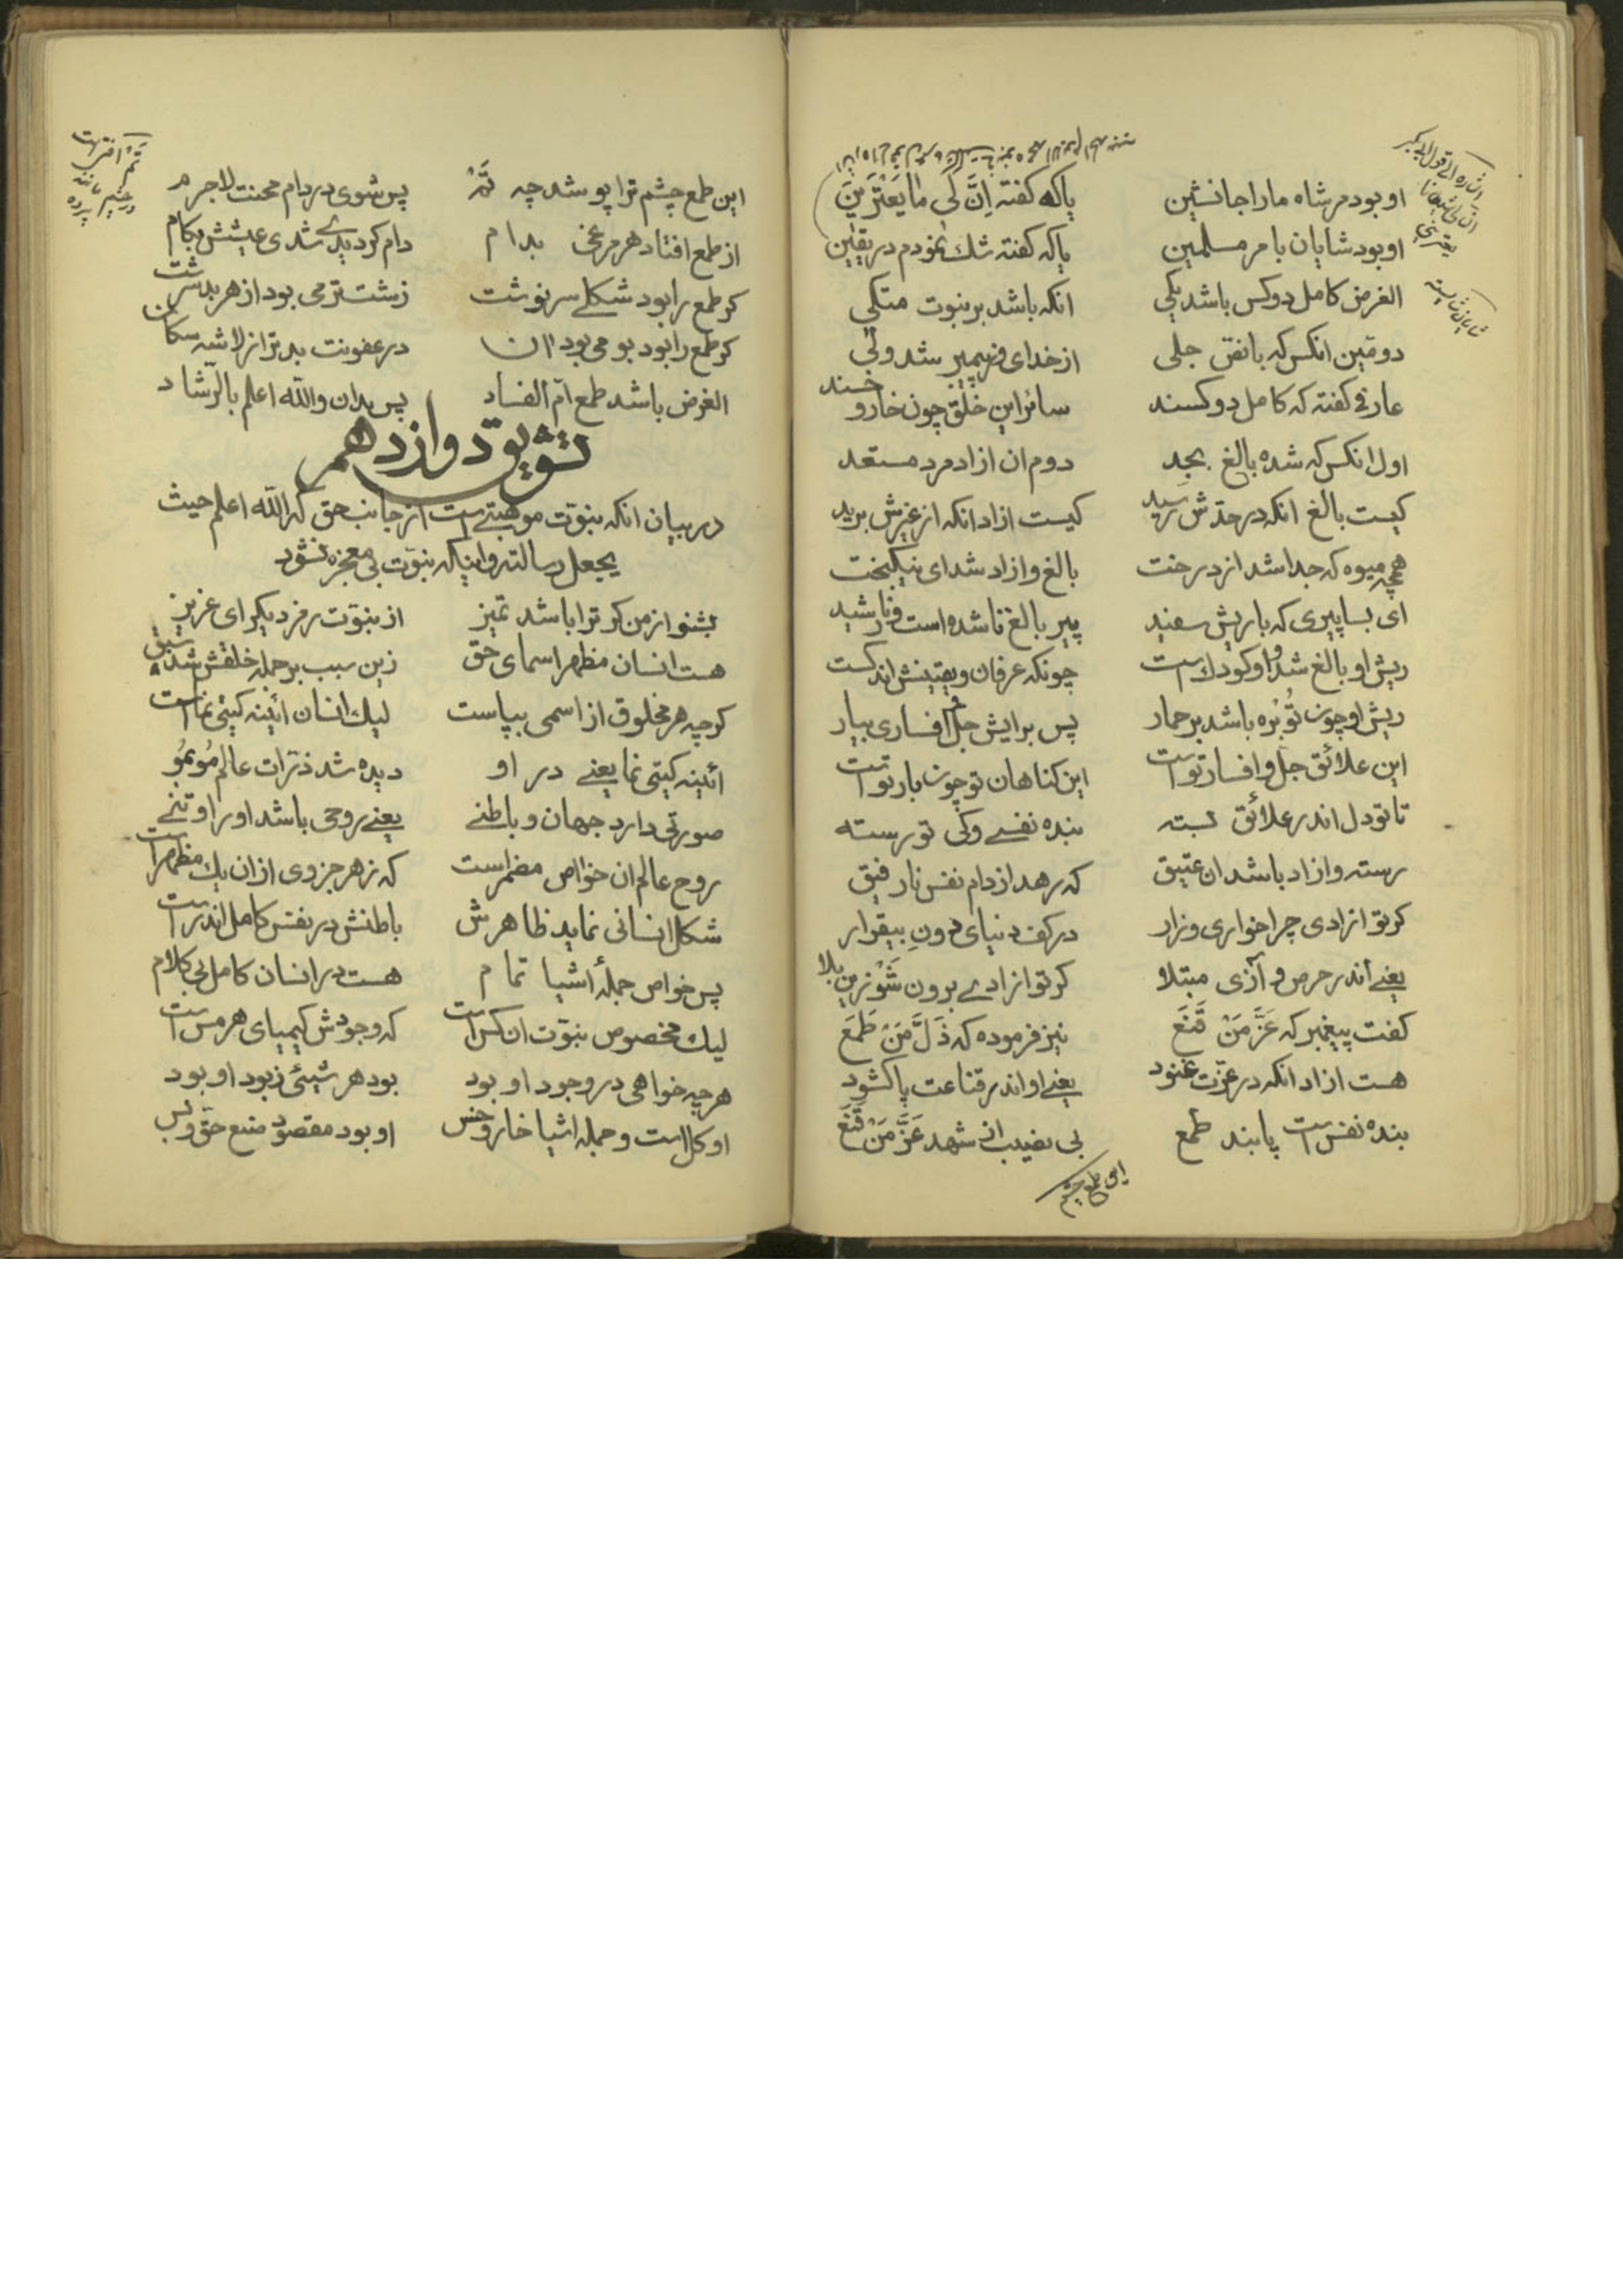 او بود مر شاه مارا جانشین یا که گفته اِنَّ لی ما یَعْتَرَیَنَ
او بود شایان بامر مسلمین یا که گفته شك نمودم در یقین
الغرض کامل دو کس باشد یکی انکه باشد بر نبوت متکی
دومین انکس که با نفس جلی از خدای و ز پیمبر شد ولی
عارفی گفته که کامل دو کسند سائر این خلق چون خار و خسند
اول انکس که شده بالغ بجد دوم ان ازاد مرد مستعد
کیست بالغ انکه در حدش رسید کیست ازاد انکه از غیرش برید
همچه میوه که جدا شد از درخت بالغ و ازاد شد ای نیکبخت
ای بسا پیری که با ریش سفید پیر بالغ ناشده است و نارشید
ریش او بالغ شد و او کودك است چونکه عرفان و یقینش اندکست
ریش او چون تُوبُره باشد بر حمار پس برایش جل و افساری بیار
این علائق جل و افسار تو است این کناهان تو چون بار تو است
تا تو دل اندر علائق بسته بنده نفسی و کی تو رسته
رسته و ازاد باشد ان عتیق که رهد از دام نفس نارفیق
کر تو ازادی چرا خواری و زار در کف دنیای دونِ بیقرار
یعنی اندر حرص و آزی مبتلا کر تو ازادی برون شَوْ زین بلا
گفت پیغمبر که عَزَّ مَنْ قَنَعَ نیز فرموده که ذَلَّ مَنْ طَمَعَ
هست ازاد انکه در عزت غنود یعنی او اندر قناعت پا کشود
بنده نفس است پابند طمع بی نصیب از شهد عَزَّ مَنْ قَنَعَ
این طمع چشم
این طمع چشم ترا پوشد چه تَمْ پس شوی در دام محنت لاجرم
از طمع افتاد هر مرغی بدام دام کردیدی شدی عیشش بکام
کر طمع را بود شکلی سرنوشت زشت‌تر می بود از هر بدسرشت
کر طمع را بود بو می بود ان در عفونت بدتر از لاشه سکان
الغرض باشد طمع اُمّ الفساد پس بدان والله اعلم بالرّشاد
تشویق دوازدهم
در بیان انکه نبوّت موهبتی است از جانب حق که الله اعلم حیث
یجعل رسالته و اینکه نبوّت بی معجزه نشود
بشنو از من کر ترا باشد تمیز از نبوّت رمز دیکر ای عزیز
هست انسان مظهر اسمای حق زین سبب بر جمله خلقش شد سبق
کرچه هر مخلوق از اسمی بپاست لیك انسان ائینه کیتی نما است
ائینه کیتی نما یعنی در او دیده شد ذرّات عالم مُو بمُو
صورتی دارد جهان و باطنی یعنی روحی باشد او را و تنی
روح عالم ان خواص مضمر است که ز هر جزوی از ان یك مظهر است
شکل انسانی نماید ظاهرش باطنش در نفس کامل اندر است
پس خواص جملهٔ اشیا تمام هست در انسان کامل بی کلام
لیك مخصوص نبوّت ان کس است که وجودش کیمیای هر مس است
هرچه خواهی در وجود او بود بود هر شیئی ز بود او بود
او کل است و جمله اشیا خار و خس او بود مقصود صنع حق و بس